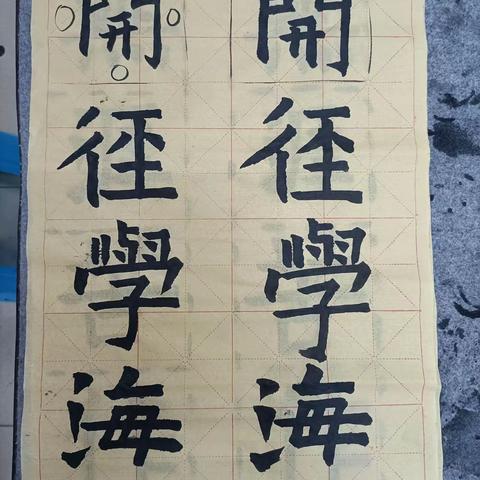 開徑學海
開徑學海